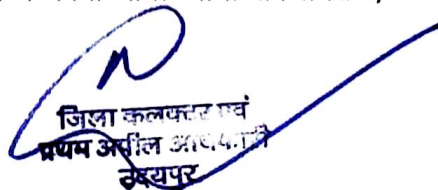 जिला कलक्टर एवं
प्रथम अपील अधिकारी
उदयपुर